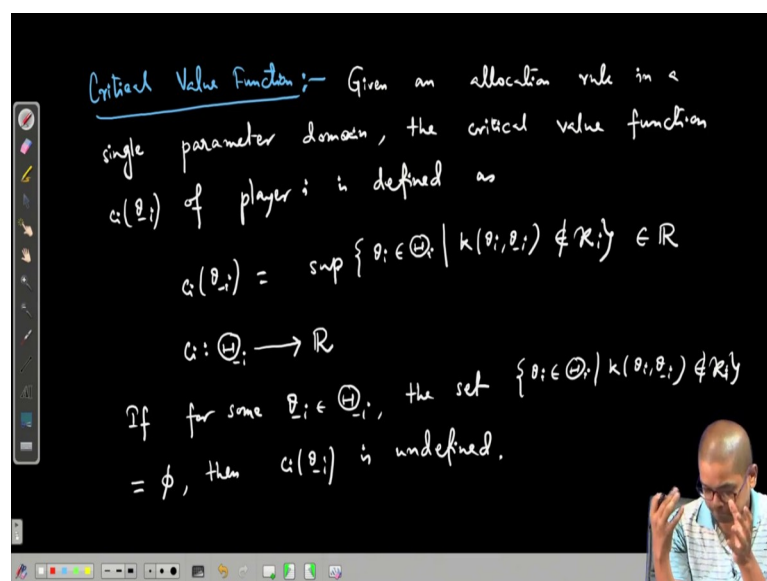 Critical Value Function:- Given an allocation rule in a
single parameter domain, the critical value function
cᵢ(θ₋ᵢ) of player i is defined as
cᵢ(θ₋ᵢ) = sup { θᵢ ∈ Θᵢ | k(θᵢ, θ₋ᵢ) ∉ 𝒦ᵢ } ∈ ℝ
cᵢ : Θ₋ᵢ → ℝ
If for some θ₋ᵢ ∈ Θ₋ᵢ, the set { θᵢ ∈ Θᵢ | k(θᵢ, θ₋ᵢ) ∉ 𝒦ᵢ }
= ϕ, then cᵢ(θ₋ᵢ) is undefined.